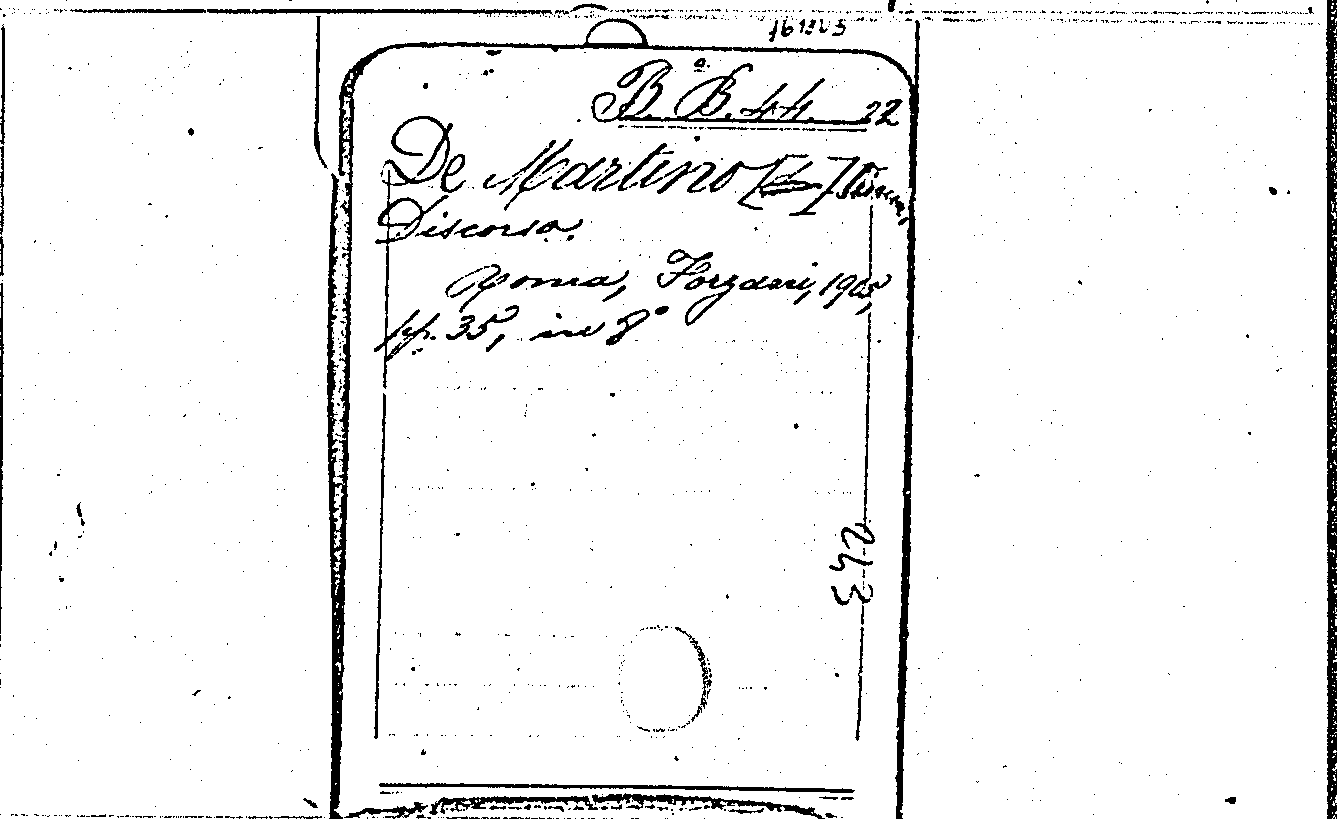 161303
B. B. 44. 22
De Martino
Discorso.
Roma, Forzani, 1905,
pp. 35, in 8°
243